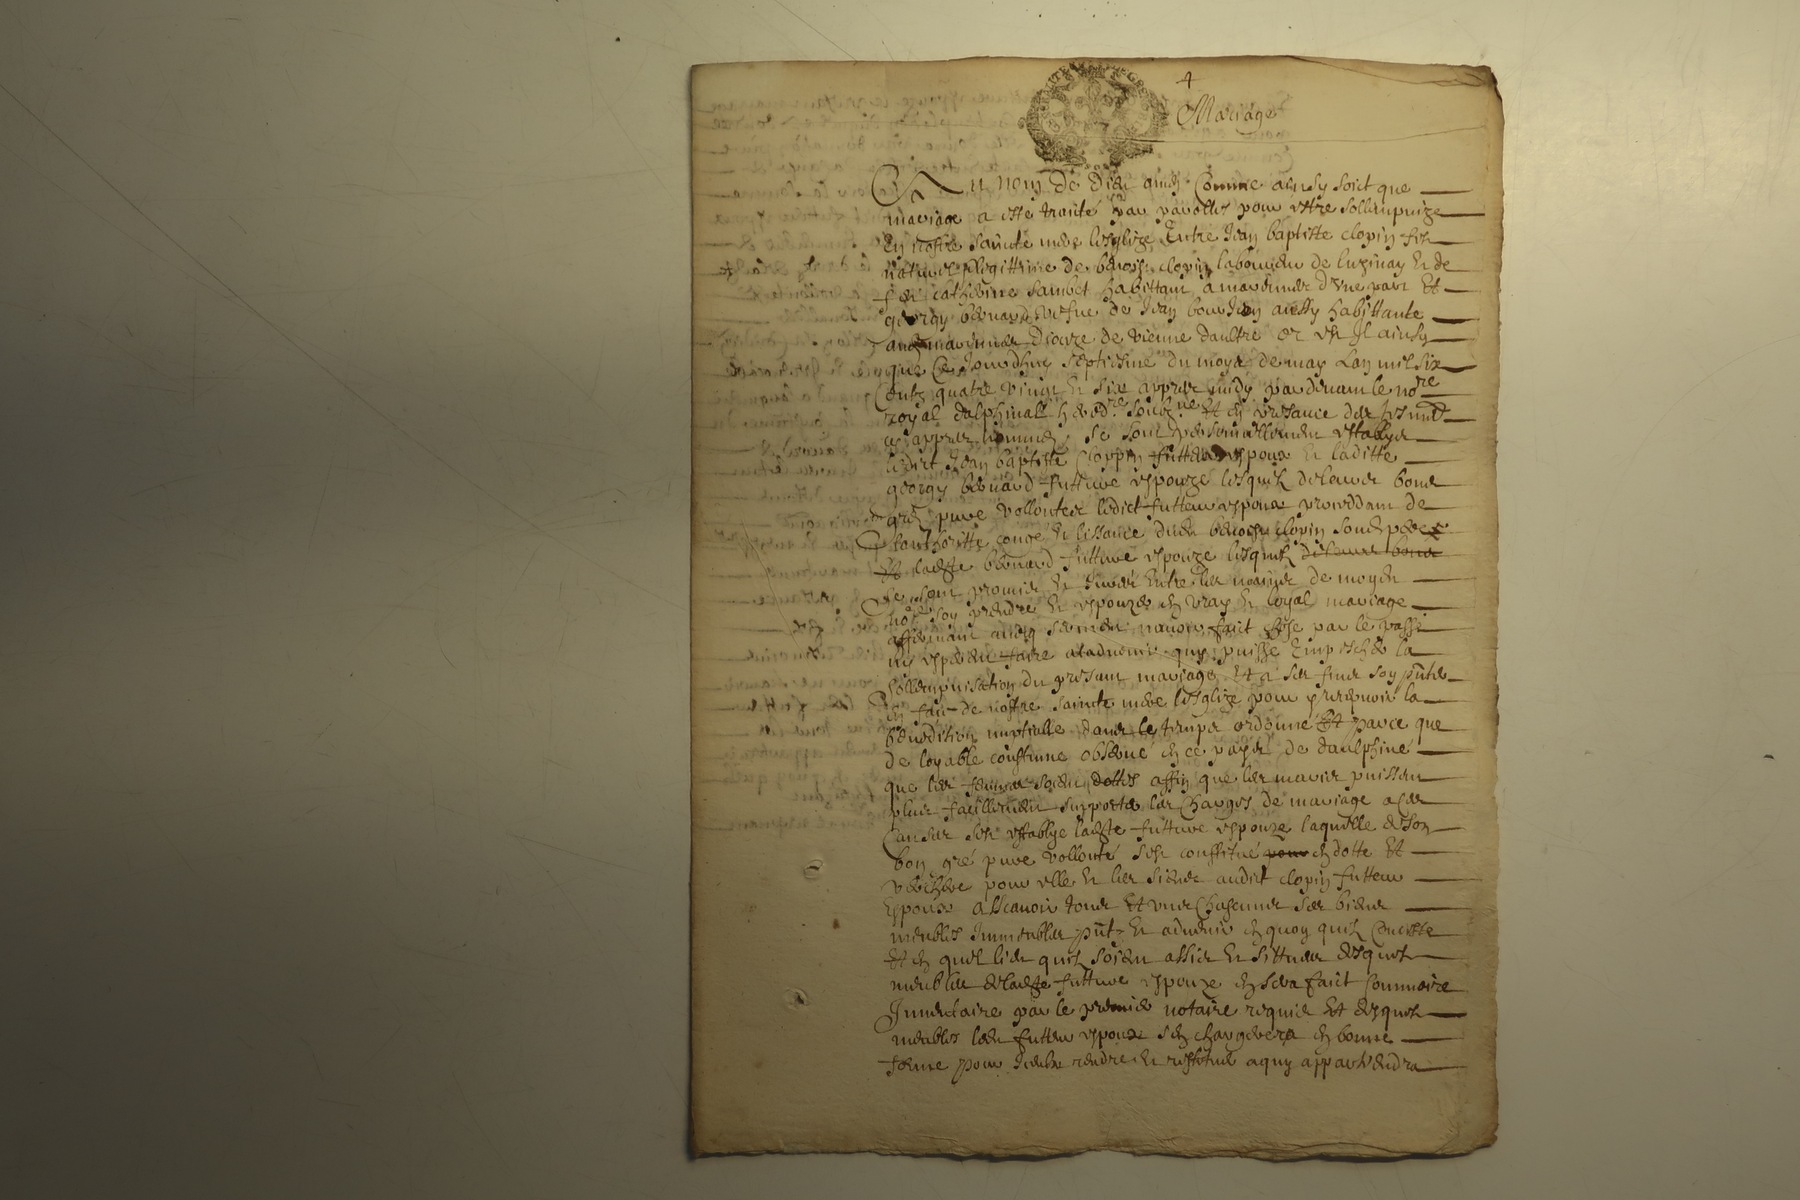 4
Mariage
Au nom de dieu amen Comme ainsy soict que
mariage a esté traité par parolles pour estre sollempnizé
En nostre saincte mere lesglize Entre Jean baptiste clopin fils
naturel & legittime de benoist clopin laboureur de luzinay Et de
feu catherine sambet habittant a marennes d'une part Et
georgy bernard vefve de Jean bourdon aussy habittante
audit marennes dioceze de vienne daultre or est Il ainsy
que Ce Jourdhuy septiesme du moys de may Lan mil six
Centz quatre vingt Et six appres midy pardevant le no.re
royal dalphinal hered.re soubz.né Et en presance des tesmoins
cy appres nommez se sont personnellement establys
ledict Jean baptiste Cloppin futteur espoux Et laditte
georgy bernard future espouze lesquelz de leurs bons
grez pure vollontez ledict futteur espoux proceddant de
l'authoritté congé Et lissance dudit benoist clopin sondit pere
Et ladite bernard future espouze lesquelz de leurs bons
se sont promis Et Jurés Entre les mains de moydit
no.re soy prendre Et espouzer en vray Et loyal mariage
affirmant avecq serment navoir faict chose par le passé
ny esperer faire aladvenir quy puisse Empescher la
sollempnisation du presant mariage Et a ses fins soy pnter
En face de nostre saincte mere lesglize pour y recepvoir la
benedition nuptialle dans le temps ordonné Et parce que
de loyable coustume observé en ce pays de daulphiné
que les femmes soient dottés affin que les maris puissent
plus facillement supporter les charges de mariage a ces
Causes sest establye ladite future espouze laquelle de son
bon gré pure vollonté sest constitué pour en dotte Et
verchere pour elle Et les siens audict clopin futteur
Espoux a scavoir tous Et uns Chascuns ses biens
meubles Immeubles pnts Et advenir en quoy quilz Conciste
Et en quel lieu quilz soient assis Et sittués desquels
meubles de ladite future espouze en sera faict sommaire
Inventaire par le premier notaire requis Et desquels
meubles ledit futteur espoux sen chargera en bonne
forme pour Iceulx rendre Et restituer a quy appartiendra